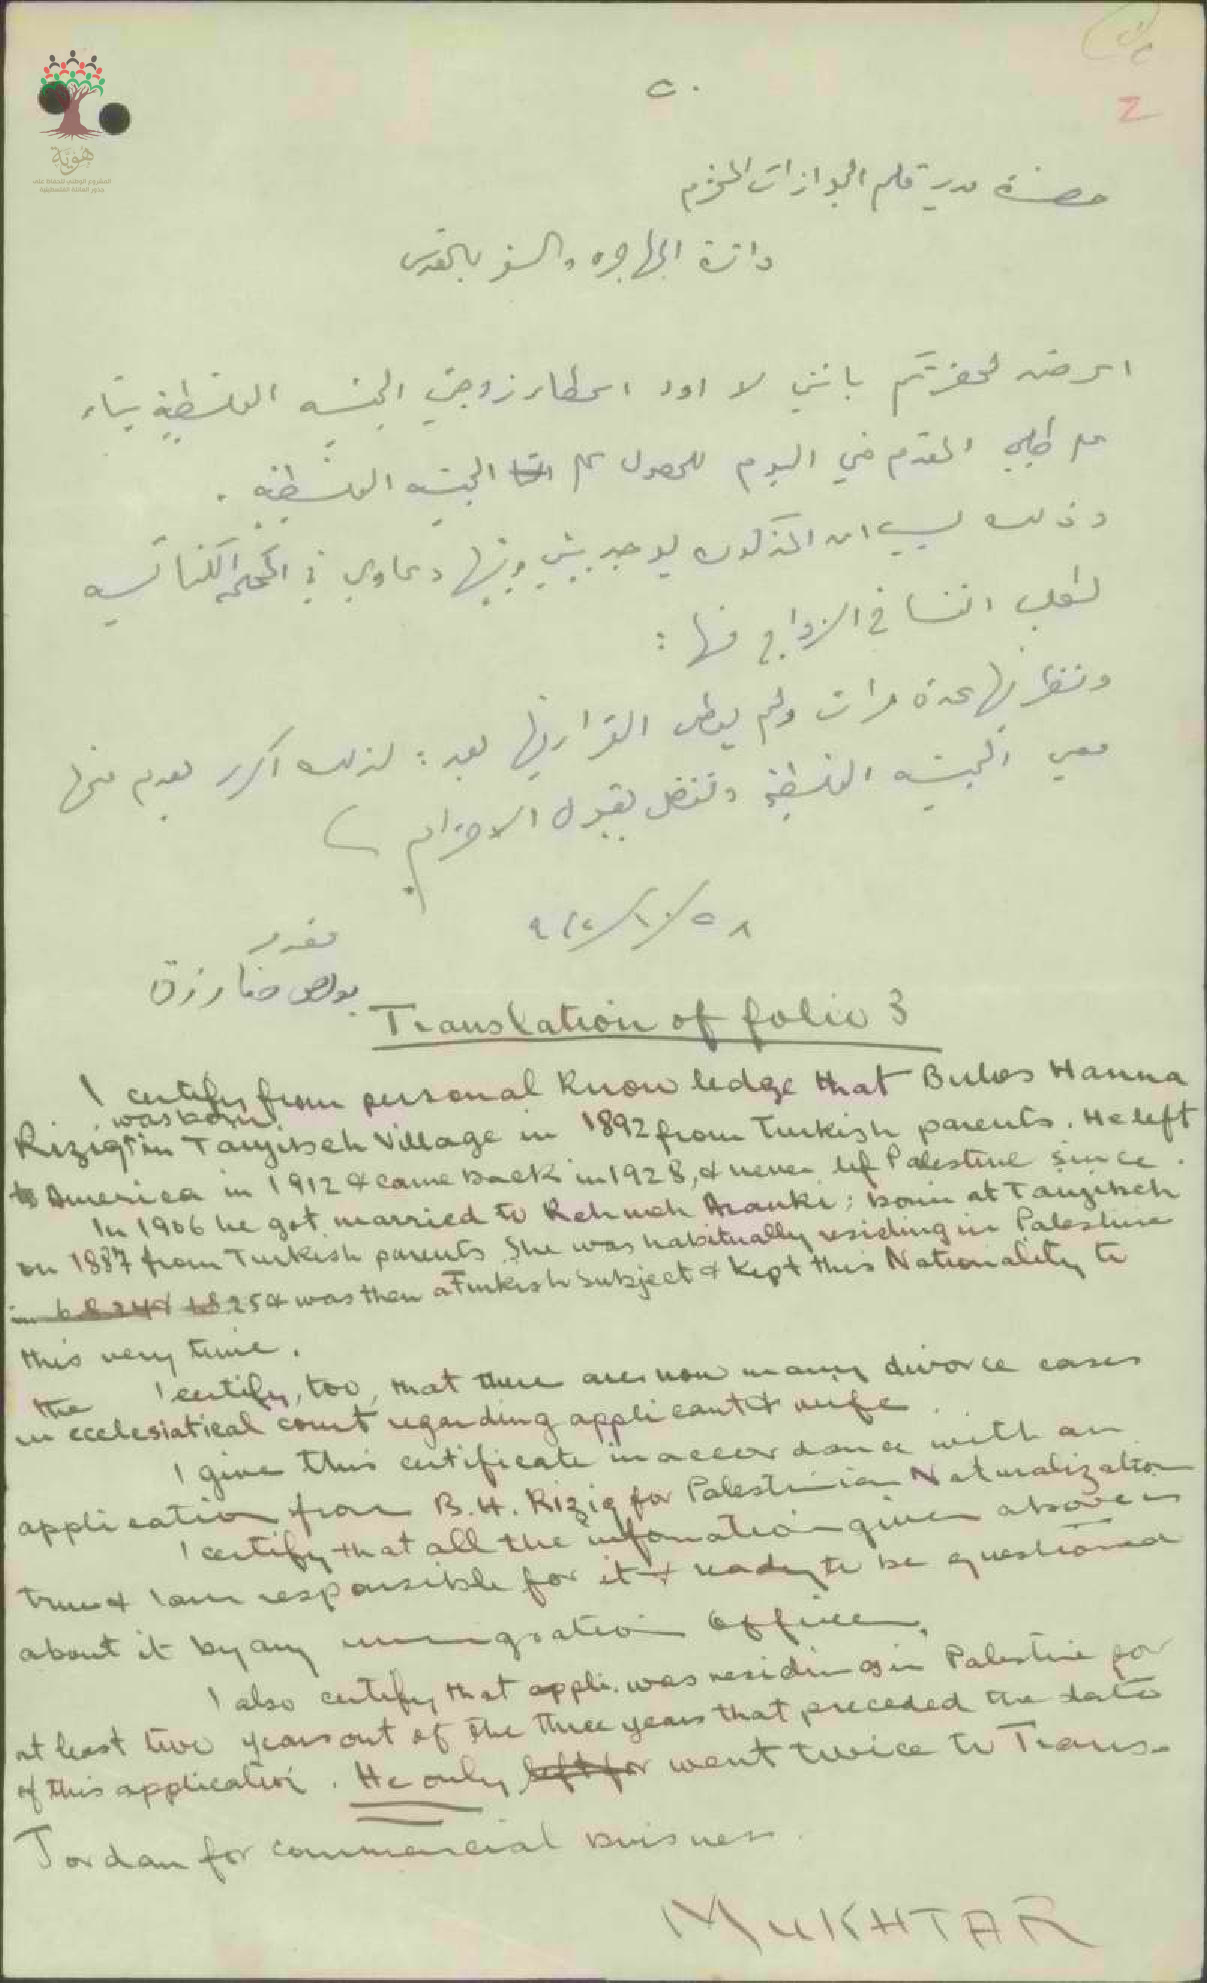 هوية
المشروع الوطني للحفاظ على
جذور العائلة الفلسطينية
2
حضرة مدير قلم الجوازات المحترم
دائرة المهاجره والسفر بالقدس
اعرض لحضرتكم بانني لا اود اعطاء زوجتي الجنسيه الفلسطينية بناء
على طلبي المقدم في اليوم للحصول على الجنسيه الفلسطينية .
وذلك بسبب ان المذكوره يوجد بيني وبينها دعاوي في المحكمه الكنائسيه
لطلب الفسا في الزواج منها :
ونظر بها عدة مرات ولم يعطى القرار بها بعد : لذلك اكرر بعدم منحها
معي الجنسيه الفلسطينية وتفضل بقبول الاحترام
مقدمه
بولص حنا رزق
Translation of folio 3
I certify from personal knowledge that Bulos Hanna
was born
Riziq in Tayibeh Village in 1892 from Turkish parents. He left
to America in 1912 & came back in 1928, & never lef Palestine since.
In 1906 he got married to Rahmeh Aranki; born at Tayibeh
on 1887 from Turkish parents. She was habitually residing in Palestine
in 6.8.24 & 1.8.25 & was then a Turkish Subject & kept this Nationality to
this very time.
I certify, too, that there are now many divorce cases
the
in ecclesiatical court regarding applicant & wife.
I give this certificate in accordance with an
application from B.H. Riziq for Palestinian Naturalization
I certify that all the infomation given above is
true & I am responsible for it & ready to be questioned
about it by any immigration Officer.
I also certify that appli. was residing in Palestine for
at least two years out of the three years that preceded the date
of this application. He only left for went twice to Trans-
Jordan for commercial buisness.
MUKHTAR